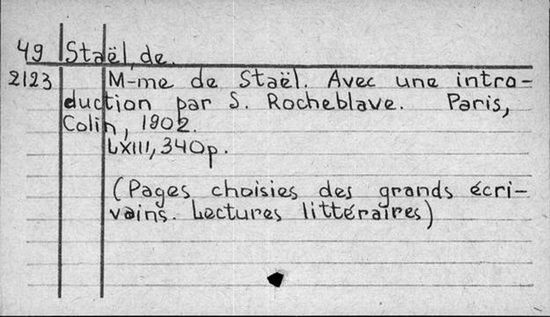 49 Staël, de.
2123 M-me de Staël. Avec une intro-
duction par S. Rocheblave. Paris,
Colin, 1902.
LXIII, 340p.
(Pages choisies des grands écri-
vains. Lectures littéraires)